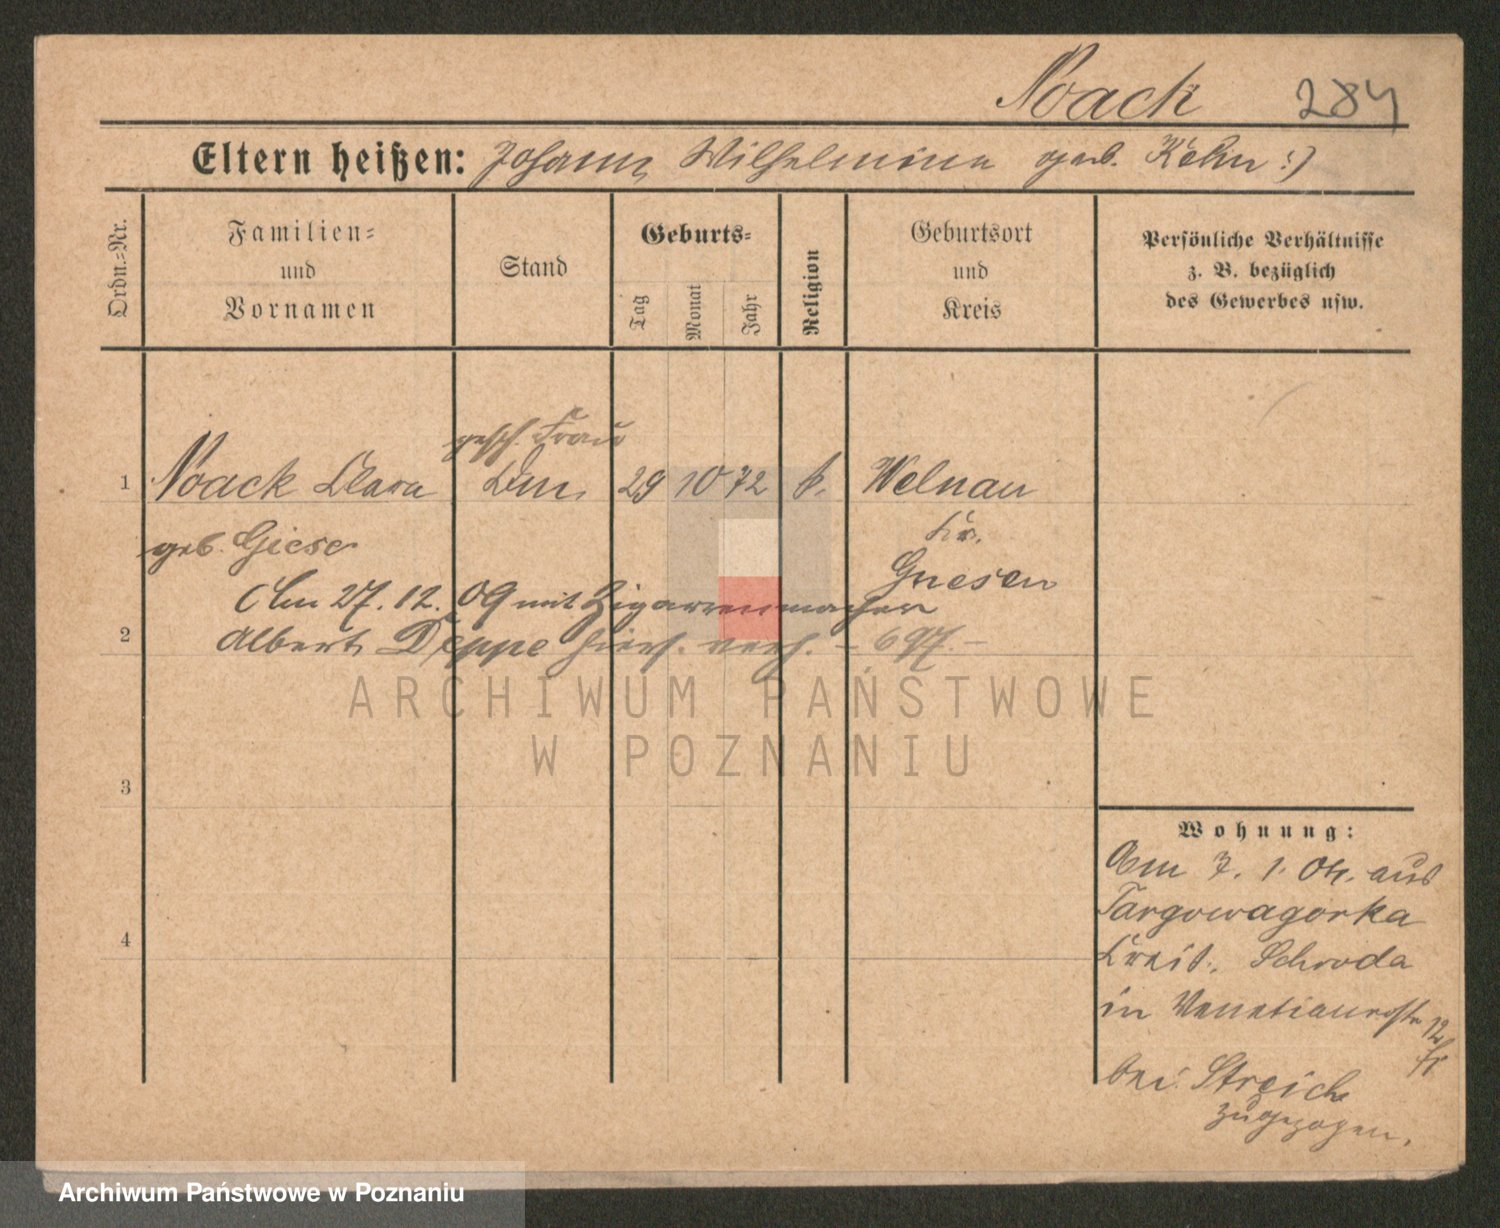 Noack 284
Eltern heißen: Johann, Wilhelmina geb. Kehn :)
Ordn.=Nr.
Familien=
und
Vornamen
Stand
Geburts=
Tag
Monat
Jahr
Religion
Geburtsort
und
Kreis
Persönliche Verhältnisse
z. B. bezüglich
des Gewerbes usw.
gesch. Frau
1 Noack Clara 29 10 72 k. Welnau
geb. Giese Kr.
Gnesen
Am 27. 12. 09 mit Zigarrenmacher
2 Albert Deppe hiers. verh. - 697. -
3
4
Wohnung:
Am 7. 1. 04. aus
Targowagorka
Kreis. Schroda
in Venetianerstr 12
bei Streich
zugezogen.
ARCHIWUM PAŃSTWOWE
W POZNANIU
Archiwum Państwowe w Poznaniu